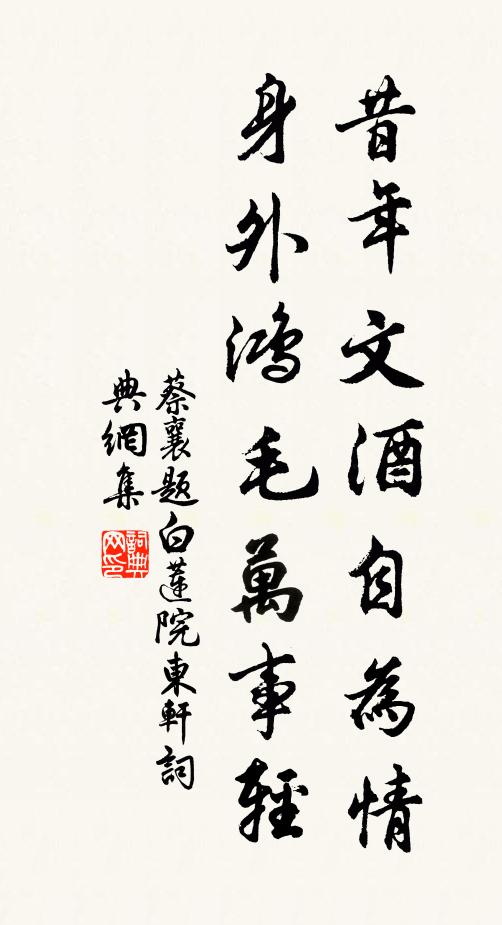 昔年文酒自為情
身外鴻毛萬事輕
蔡襄题白蓮院東軒詞
典網集
詞典
网印